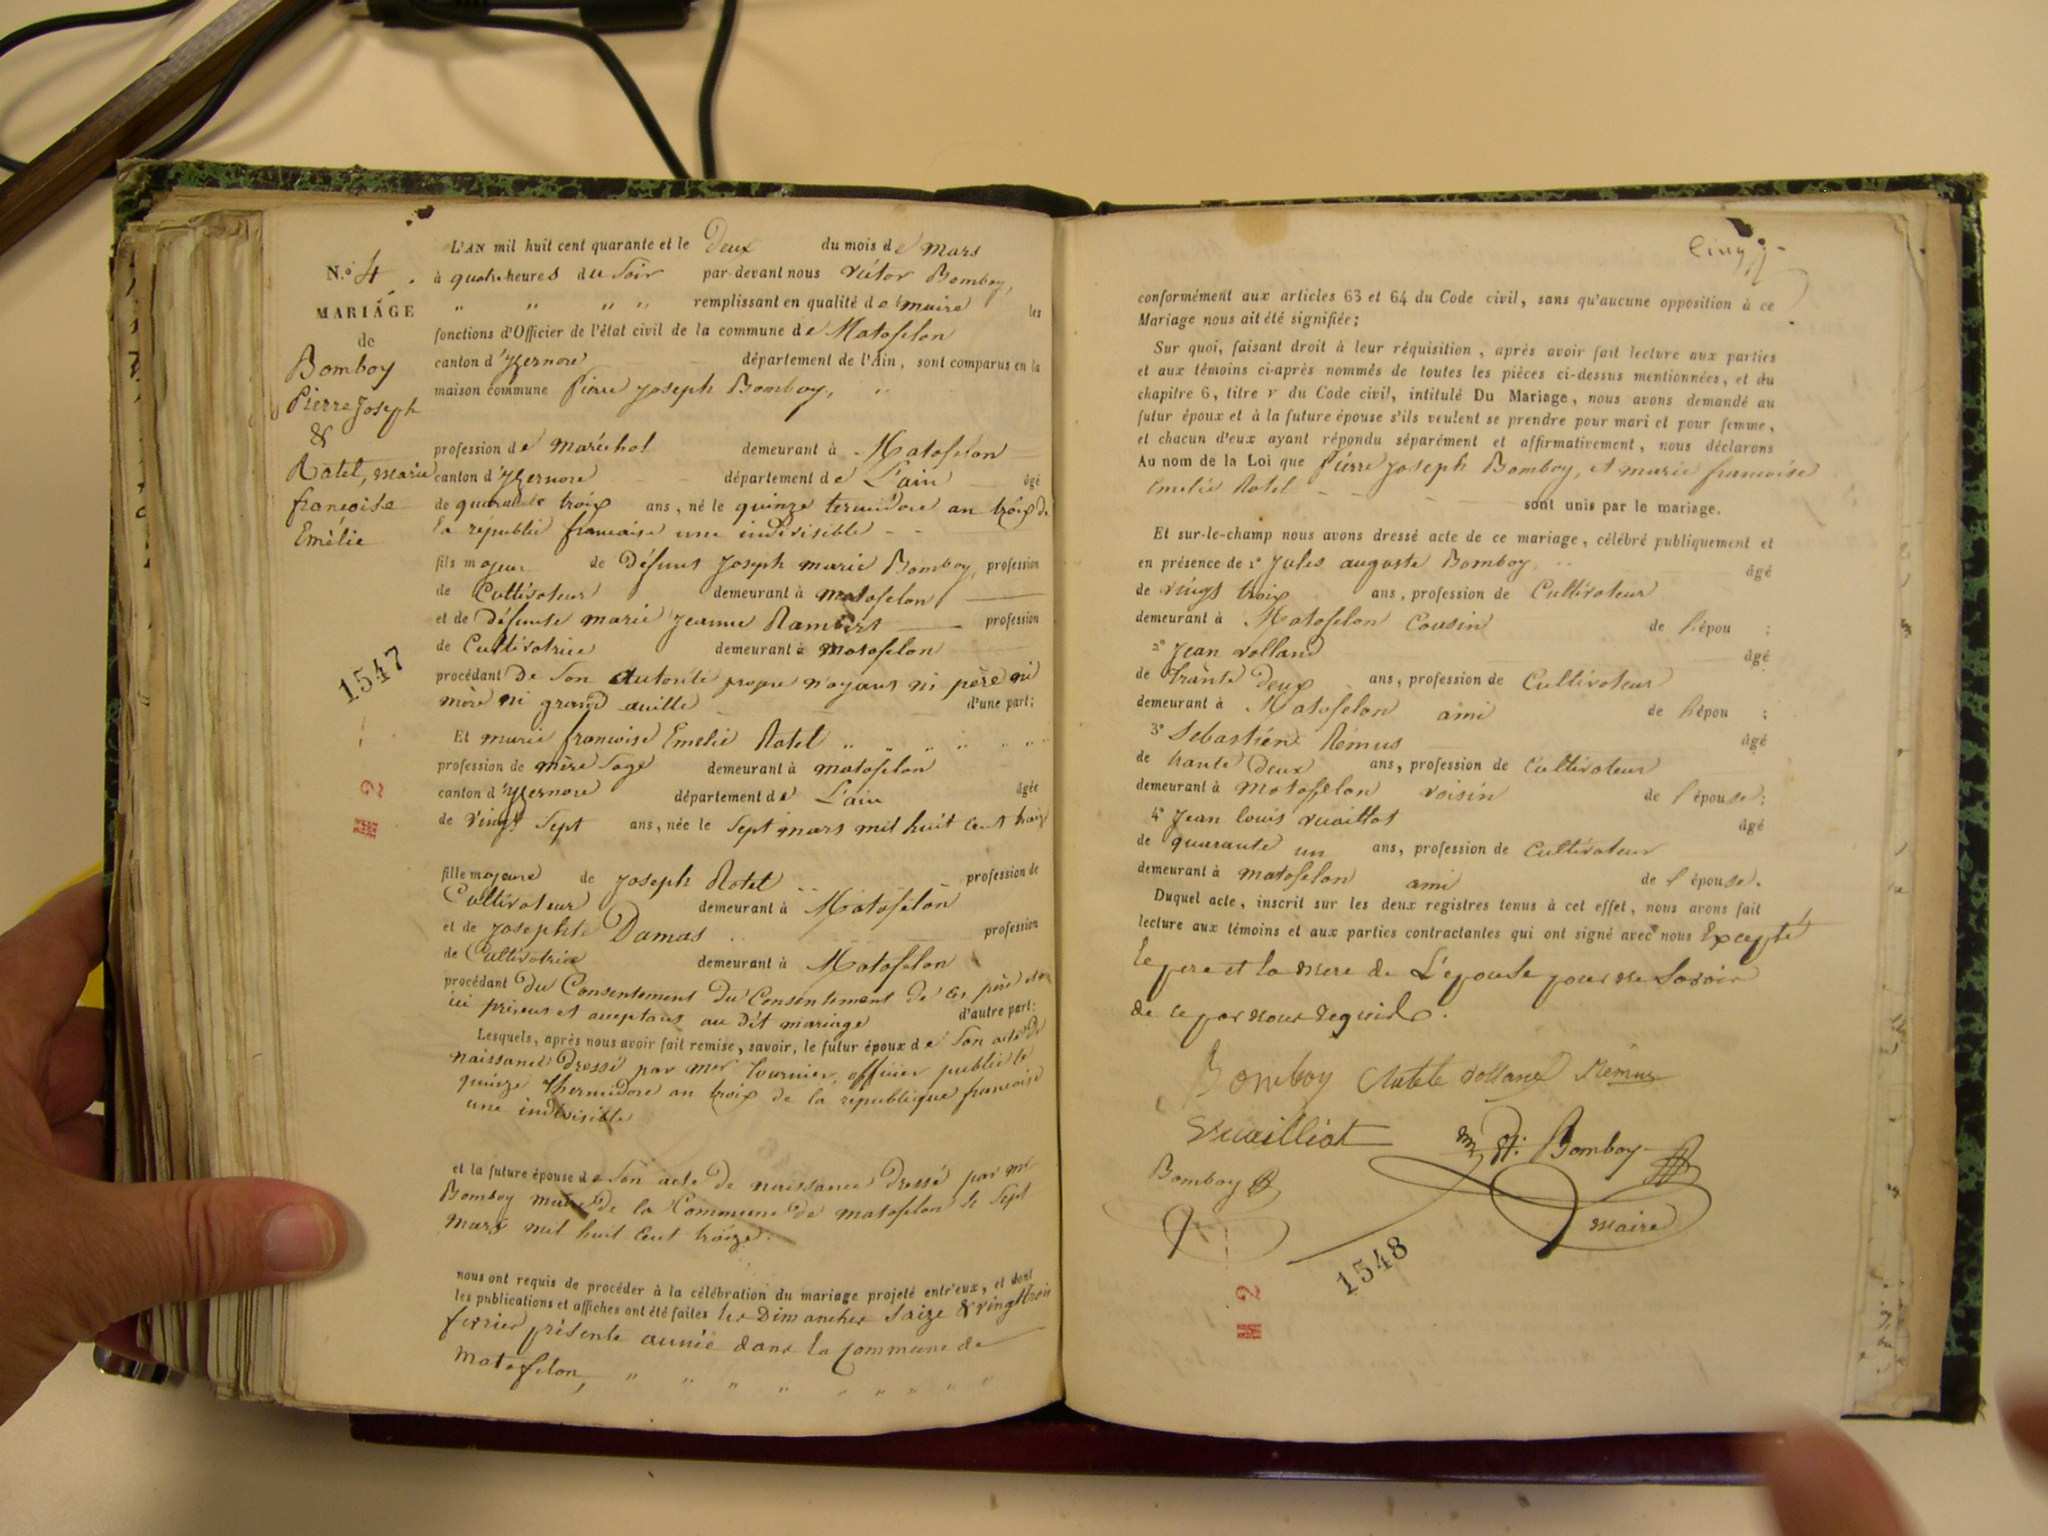 N.º 4.
MARIAGE
de
Bomboy
Pierre Joseph
&
Ratel, marie
francoise
Emélie
1547
M 2
L'AN mil huit cent quarante et le Deux du mois de mars
à quatre heures du Soir par-devant nous victor Bomboy,
" " " " remplissant en qualité de maire les
fonctions d'Officier de l'état civil de la commune de Matafelon
canton d'Yzernore département de l'Ain, sont comparus en la
maison commune Pierre Joseph Bomboy, "
profession de maréchal demeurant à Matafelon
canton d'Yzernore département de L'ain âgé
de quarante trois ans, né le quinze termidore an trois de
la républic francaise une indivisible
fils majeur de Défunt Joseph marie Bomboy, profession
de Cultivateur demeurant à matafelon
et de Défunte marie Jeanne Rambert profession
de Cultivatrice demeurant à matafelon
procédant De Son Autorité propre n'ayant ni père ni
mère ni grand auille d'une part;
Et marie francoise Emelie Ratel " " " " " " "
profession de mère Sage demeurant à matafelon
canton d'Yzernore département de L'ain âgée
de vingt Sept ans, née le Sept mars mil huit cent traize
fille majeure de Joseph Ratel profession de
Cultivateur demeurant à Matafelon
et de Josephte Damas profession
de Cultivatrice demeurant à Matafelon
procédant du Consentement Du Consentement De ses père et
ici présens et acceptans au dit mariage d'autre part:
Lesquels, après nous avoir fait remise, savoir, le futur époux de Son acte de
naissance Dressé par mer tournier, officier public le
quinze thermidore an troix de la republique francaise
une indivisible
et la future épouse de Son acte de naissance Dressé par mr
Bomboy maire De la Commune De matafelon le Sept
mars mil huit Cent traize.
nous ont requis de procéder à la célébration du mariage projeté entr'eux, et dont
les publications et affiches ont été faites les Dimanches Saize & vingt trois
fevrier présente année dans la Commune de
Matafelon, " " " " " " " " "
Cinq
conformément aux articles 63 et 64 du Code civil, sans qu'aucune opposition à ce
Mariage nous ait été signifiée;
Sur quoi, faisant droit à leur réquisition, après avoir fait lecture aux parties
et aux témoins ci-après nommés de toutes les pièces ci-dessus mentionnées, et du
chapitre 6, titre v du Code civil, intitulé Du Mariage, nous avons demandé au
futur époux et à la future épouse s'ils veulent se prendre pour mari et pour femme,
et chacun d'eux ayant répondu séparément et affirmativement, nous déclarons
Au nom de la Loi que Pierre Joseph Bomboy, et marie francoise
Emelie Ratel
sont unis par le mariage.
Et sur-le-champ nous avons dressé acte de ce mariage, célébré publiquement et
en présence de 1º Jules auguste Bomboy âgé
de vingt troix ans, profession de Cultivateur
demeurant à Matafelon Cousin de l'épou ;
2º Jean volland âgé
de trante Deux ans, profession de Cultivateur
demeurant à Matafelon ami de l'épou ;
3º Sebastien Rémus âgé
de trante Deux ans, profession de Cultivateur
demeurant à matafelon voisin de l'épouse;
4º Jean louis vuaillat âgé
de quarante un ans, profession de Cultivateur
demeurant à matafelon ami de l'épouse.
Duquel acte, inscrit sur les deux registres tenus à cet effet, nous avons fait
lecture aux témoins et aux parties contractantes qui ont signé avec nous Excepté
le pere et la mere de L'epouse pour ne Savoir
de ce par nous requis.
Bomboy Ratele volland Rémus
Vuailliat Bomboy
Bomboy maire
1548
M 2